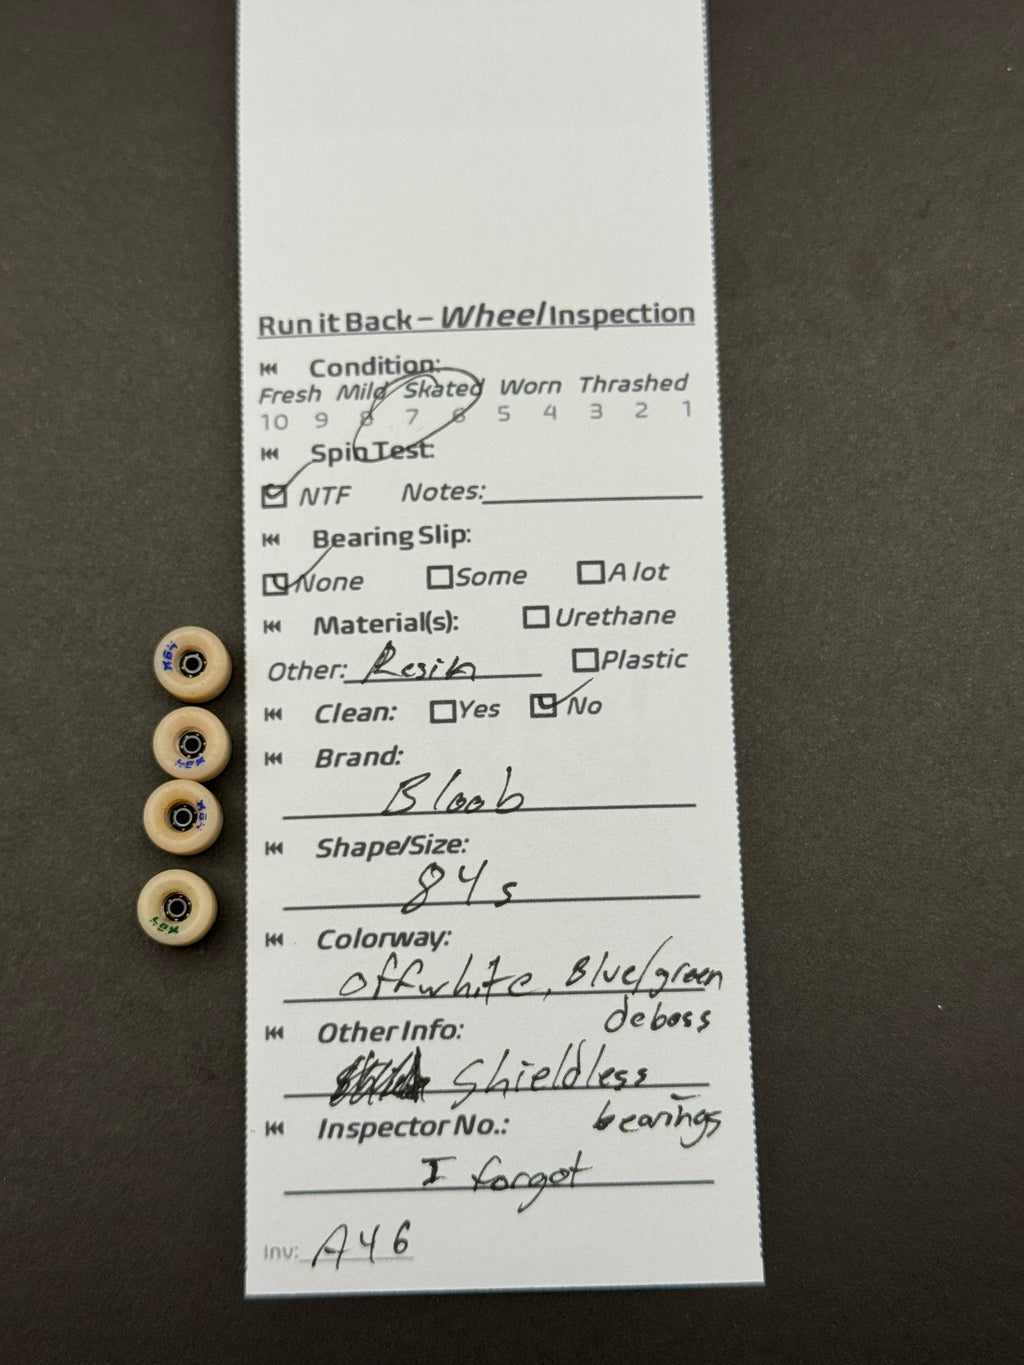 Run it Back – Wheel Inspection
Condition:
Fresh Mild Skated Worn Thrashed
10 9 8 7 6 5 4 3 2 1
Spin Test:
NTF Notes:
Bearing Slip:
None Some A lot
Material(s): Urethane
Other: Resin Plastic
Clean: Yes No
Brand:
Bloob
Shape/Size:
84s
Colorway:
offwhite, Blue/green
deboss
Other Info:
Shieldless
bearings
Inspector No.:
I forgot
Inv: A46